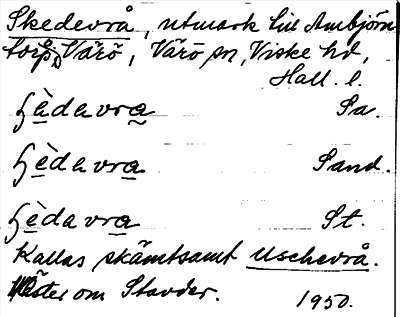 Skedevrå, utmark till Ambjörn-
torp, Värö, Värö sn, Viske hd,
Hall. l.
ʃèdavra Sa.
ʃèdavra Sand.
ʃèdavra St.
Kallas skämtsamt Uschevrå.
Väster om Stavder.
1950.